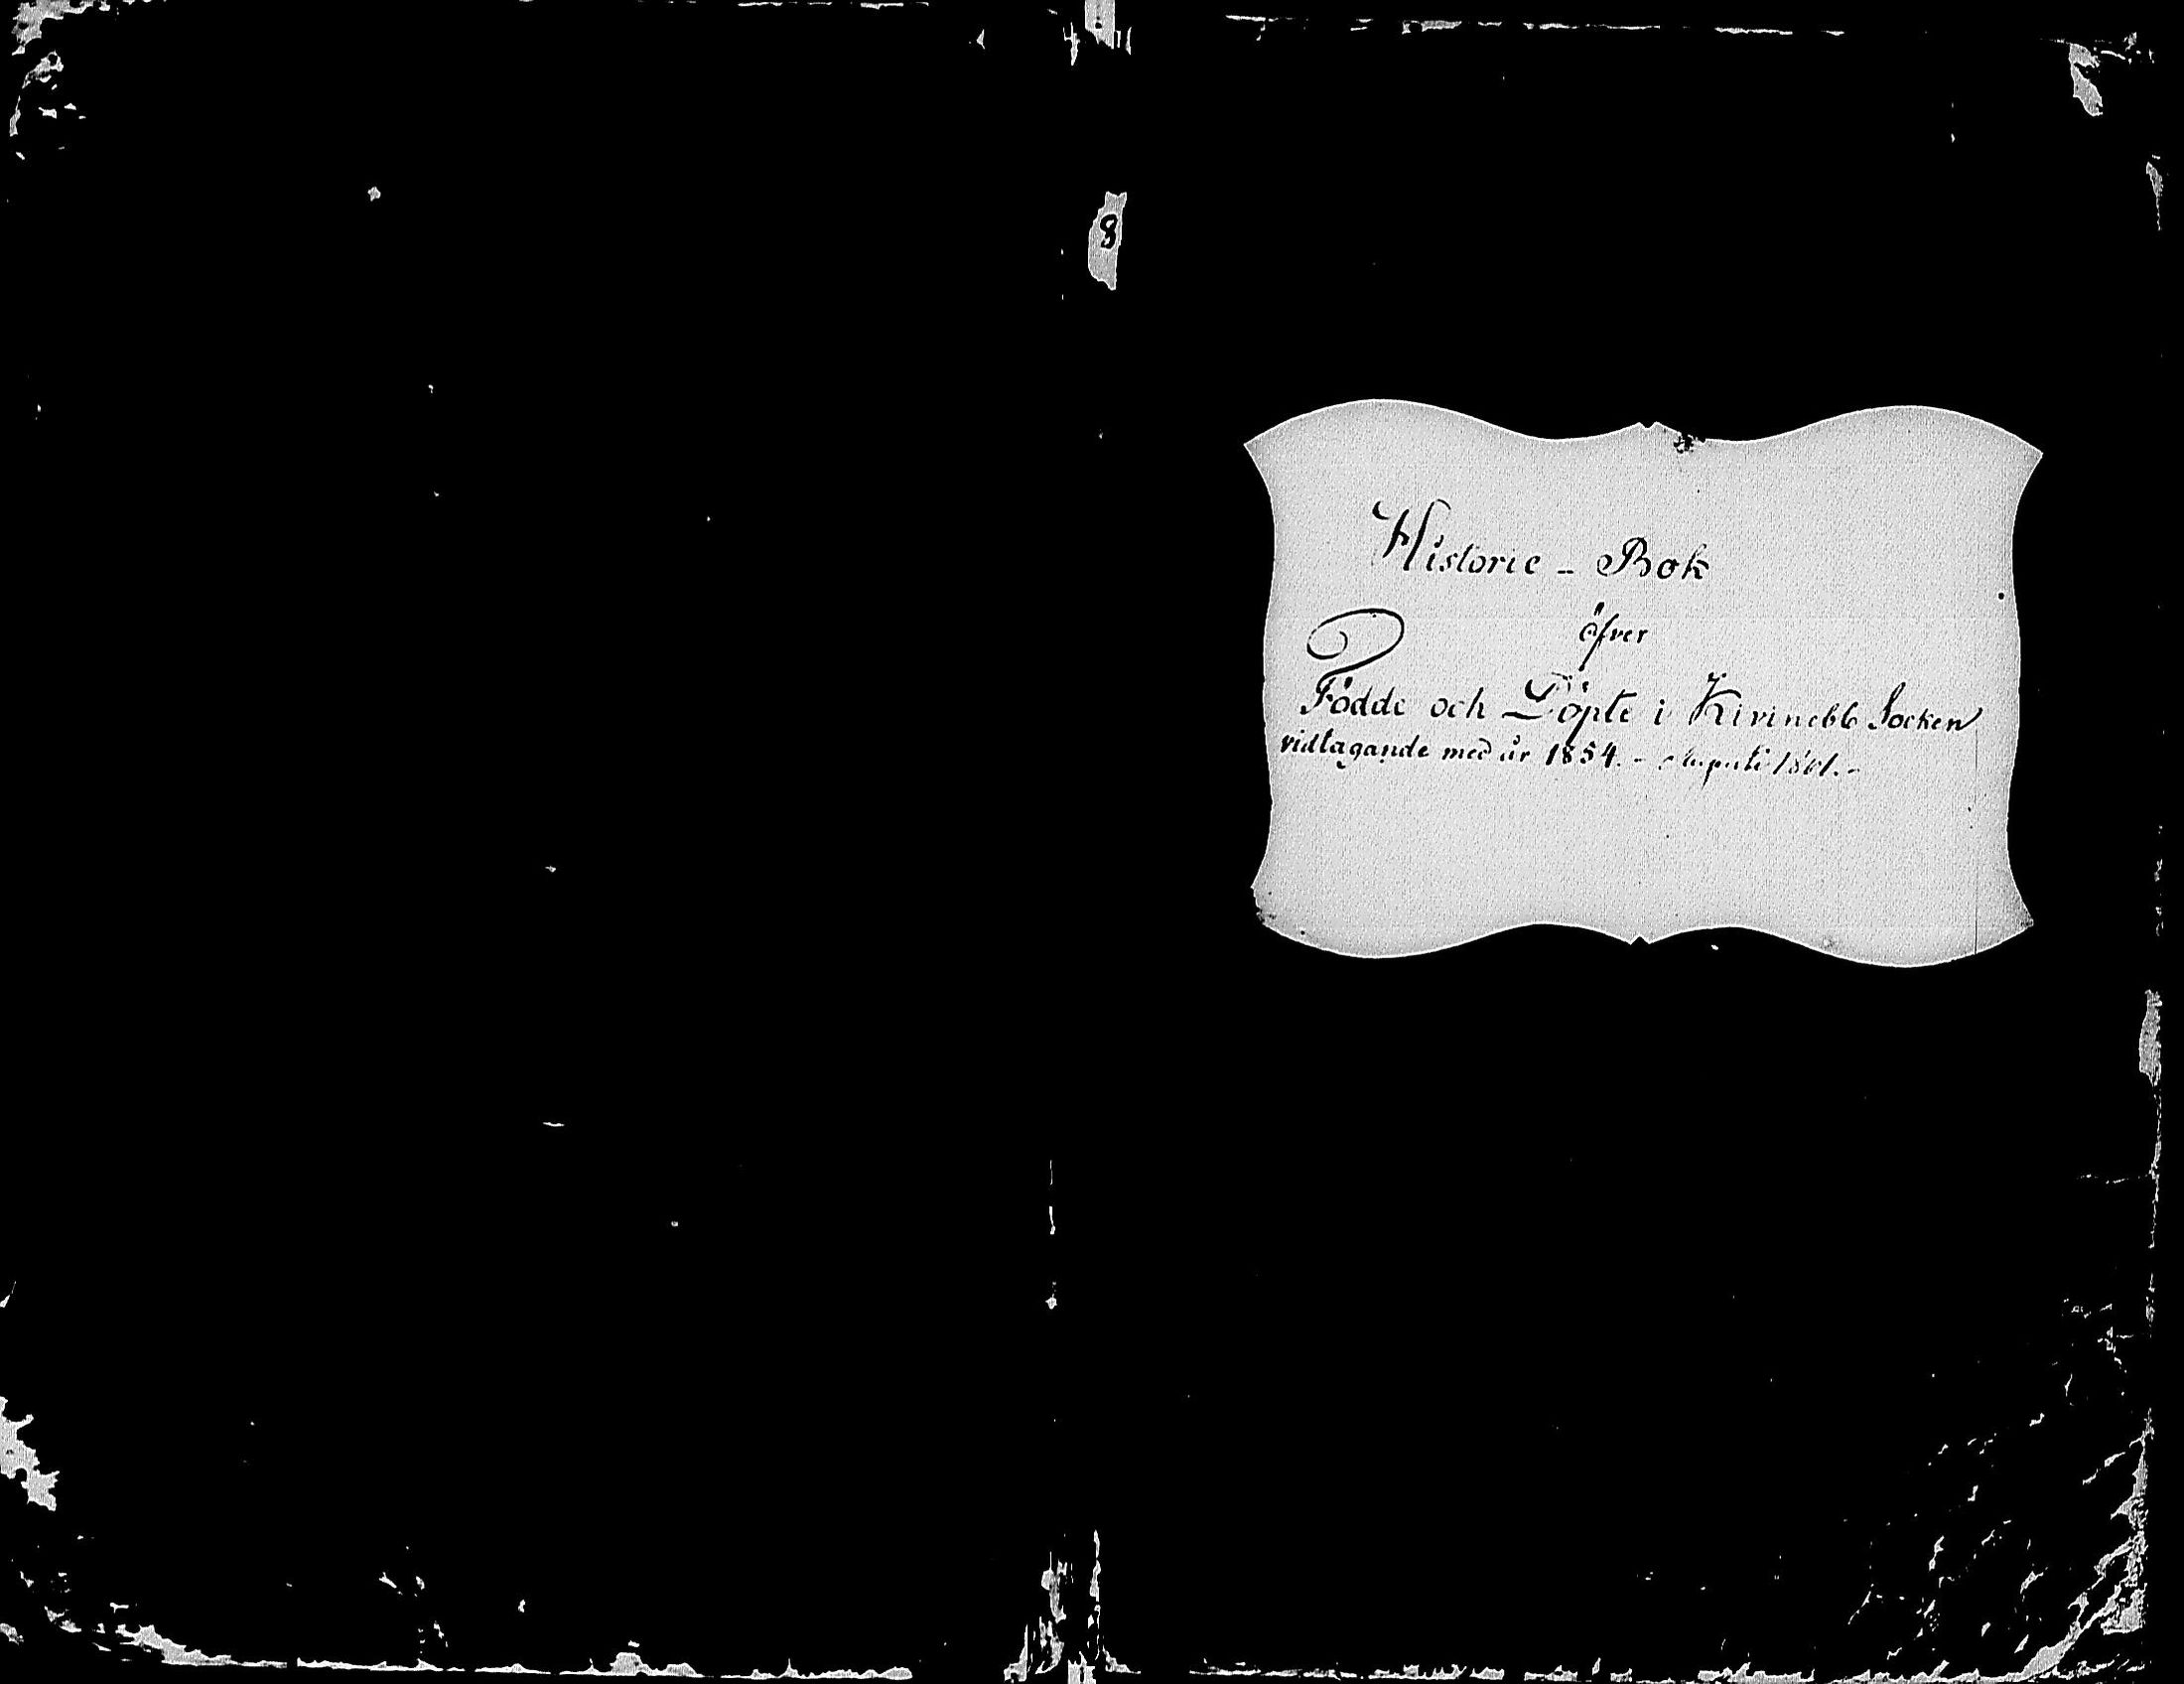 8
Historie - Bok
öfver
Födde och Döpte i Kivinebb Socken
vidtagande med år 1854. - 1861. -